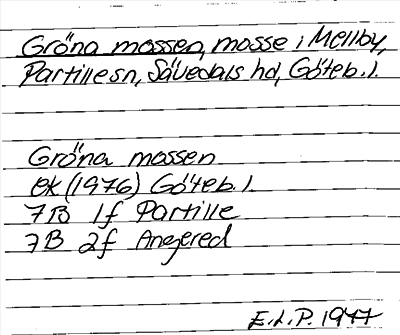 Gröna mossen, mosse i Mellby,
Partille sn, Sävedals hd, Göteb. l.
Gröna mossen
EK (1976) Göteb. l.
7B 1f Partille
7B 2f Angered
E.L.P. 1977